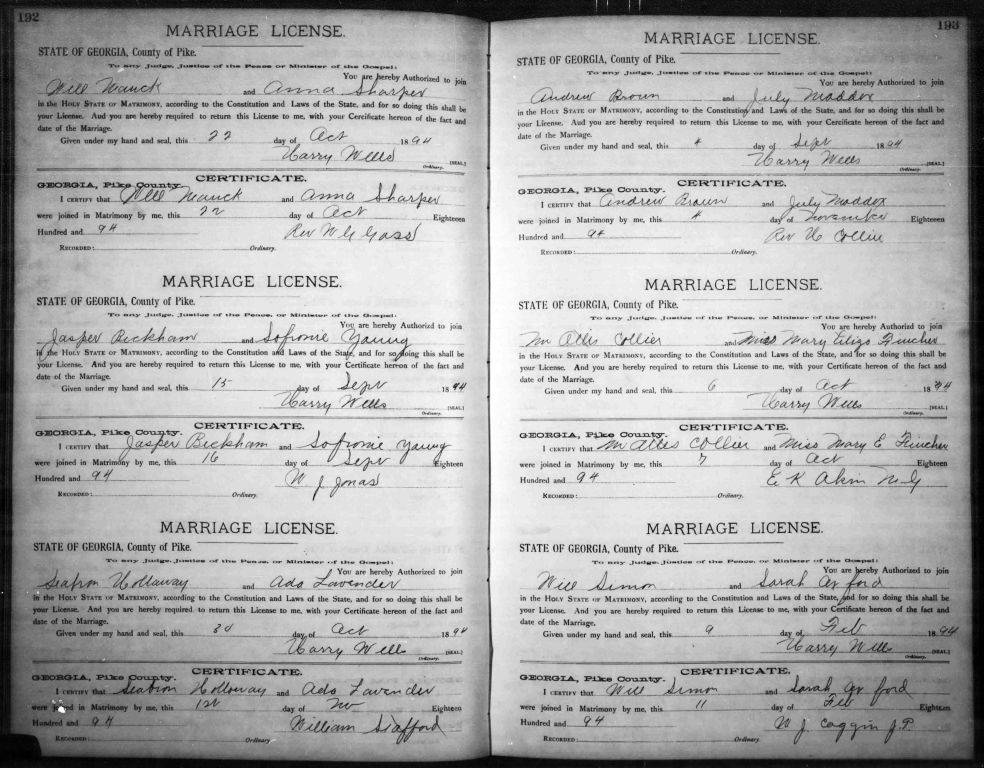 192
MARRIAGE LICENSE.
STATE OF GEORGIA, County of Pike.
To any Judge, Justice of the Peace or Minister of the Gospel:
You are hereby Authorized to join
Will Mauck and Anna Sharper
in the HOLY STATE OF MATRIMONY, according to the Constitution and Laws of the State, and for so doing this shall be
your License. And you are hereby required to return this License to me, with your Certificate hereon of the fact and
date of the Marriage.
Given under my hand and seal, this 22 day of Oct 1894
Harry Wells [SEAL.]
Ordinary.
CERTIFICATE.
GEORGIA, Pike County.
I CERTIFY that Will Mauck and Anna Sharper
were joined in Matrimony by me, this 22 day of Oct Eighteen
Hundred and 94 Rev W G Goss
RECORDED: Ordinary.
MARRIAGE LICENSE.
STATE OF GEORGIA, County of Pike.
To any Judge, Justice of the Peace, or Minister of the Gospel:
You are hereby Authorized to join
Jasper Beckham and Sofronie Young
in the HOLY STATE OF MATRIMONY, according to the Constitution and Laws of the State, and for so doing this shall be
your License. And you are hereby required to return this License to me, with your Certificate hereon of the fact and
date of the Marriage.
Given under my hand and seal, this 15 day of Sept 1894
Harry Wells [SEAL.]
Ordinary.
CERTIFICATE.
GEORGIA, Pike County.
I CERTIFY that Jasper Beckham and Sofronie Young
were joined in Matrimony by me, this 16 day of Sept Eighteen
Hundred and 94 W J Jonas
RECORDED: Ordinary.
MARRIAGE LICENSE.
STATE OF GEORGIA, County of Pike.
To any Judge, Justice of the Peace, or Minister of the Gospel:
You are hereby Authorized to join
Seabron Hollaway and Ada Lavender
in the HOLY STATE OF MATRIMONY, according to the Constitution and Laws of the State, and for so doing this shall be
your License. And you are hereby required to return this License to me, with your Certificate hereon of the fact and
date of the Marriage.
Given under my hand and seal, this day of Oct 1894
Harry Wells [SEAL.]
Ordinary.
CERTIFICATE.
GEORGIA, Pike County.
I CERTIFY that Seabron Holloway and Ada Lavender
were joined in Matrimony by me, this 1st day of Nov Eighteen
Hundred and 94 William Stafford
RECORDED: Ordinary
193
MARRIAGE LICENSE.
STATE OF GEORGIA, County of Pike.
To any Judge, Justice of the Peace or Minister of the Gospel:
You are hereby Authorized to join
Andrew Brown and July Maddox
in the HOLY STATE OF MATRIMONY, according to the Constitution and Laws of the State, and for so doing this shall be
your License. And you are hereby required to return this License to me, with your Certificate hereon of the fact and
date of the Marriage.
Given under my hand and seal, this 4 day of Sept 1894
Harry Wells [SEAL.]
Ordinary.
CERTIFICATE.
GEORGIA, Pike County.
I CERTIFY that Andrew Brown and July Maddox
were joined in Matrimony by me, this 4 day of Eighteen
Hundred and 94 Rev Collier
RECORDED: Ordinary.
MARRIAGE LICENSE.
STATE OF GEORGIA, County of Pike.
To any Judge, Justice of the Peace, or Minister of the Gospel:
You are hereby Authorized to join
Mr Attis Collier and Miss Mary Eliza Fincher
in the HOLY STATE OF MATRIMONY, according to the Constitution and Laws of the State, and for so doing this shall be
your License. And you are hereby required to return this License to me, with your Certificate hereon of the fact and
date of the Marriage.
Given under my hand and seal, this 6 day of Oct 1894
Harry Wells [SEAL.]
Ordinary.
CERTIFICATE.
GEORGIA, Pike County.
I CERTIFY that Mr Attis Collier and Miss Mary E Fincher
were joined in Matrimony by me, this 7 day of Oct Eighteen
Hundred and 94 E K Akin M.G
RECORDED: Ordinary.
MARRIAGE LICENSE.
STATE OF GEORGIA, County of Pike.
To any Judge, Justice of the Peace, or Minister of the Gospel:
You are hereby Authorized to join
Will Simon and Sarah ford
in the HOLY STATE OF MATRIMONY, according to the Constitution and Laws of the State, and for so doing this shall be
your License. And you are hereby required to return this License to me, with your Certificate hereon of the fact and
date of the Marriage.
Given under my hand and seal, this 9 day of Feb 1894
Harry Wells [SEAL.]
Ordinary.
CERTIFICATE.
GEORGIA, Pike County.
I CERTIFY that Will Simon and Sarah ford
were joined in Matrimony by me, this 11 day of Feb Eighteen
Hundred and 94 W. J. Coggin J.P.
RECORDED: Ordinary.